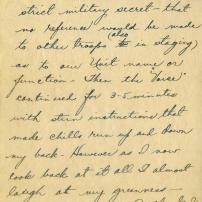 strict military secret - that
no reference would be made
(also
to other troops in staging)
as to our Unit name or
function - Then the "Voice"
continued for 3-5 minutes
with stern instructions that
made chills run up and down
my back - However as I now
look back at it all I almost
laugh at my greenness -